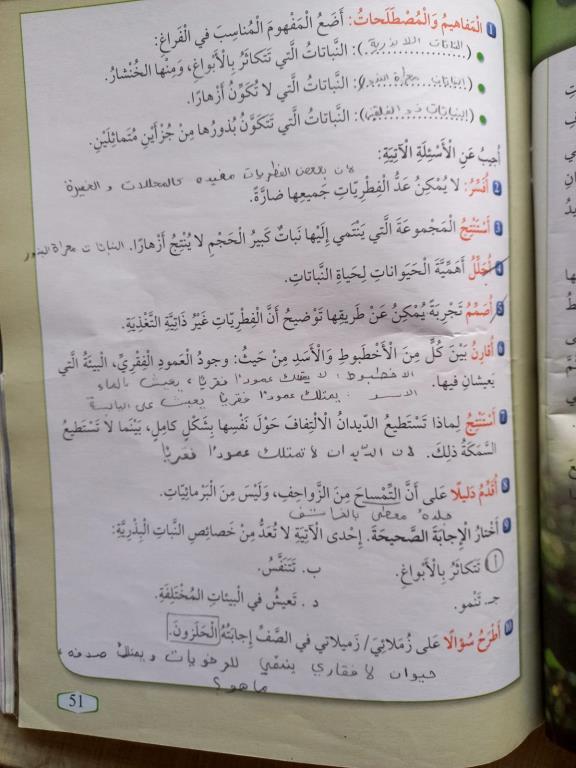 1 الْمَفاهيمُ وَالْمُصْطَلَحاتُ: أَضَعُ الْمَفْهومَ الْمُناسِبَ في الْفَراغِ:
(النباتات اللابذرية): النَّباتاتُ الَّتي تَتَكاثَرُ بِالْأَبْواغِ، وَمِنْها الْخُنْشارُ.
(النباتات معراة البذور): النَّباتاتُ الَّتي لا تُكَوِّنُ أَزْهارًا.
(النباتات ذوات الفلقتين): النَّباتاتُ الَّتي تَتَكَوَّنُ بُذورُها مِنْ جُزْأَيْنِ مُتَماثِلَيْنِ.
أُجيبُ عَنِ الْأَسْئِلَةِ الْآتِيَةِ:
لان بعض الفطريات مفيدة كالمحللات و الخميرة
2 أُفَسِّرُ: لا يُمْكِنُ عَدُّ الْفِطْرِيّاتِ جَميعِها ضارَّةً.
3 أَسْتَنْتِجُ الْمَجْموعَةَ الَّتي يَنْتَمي إِلَيْها نَباتٌ كَبيرُ الْحَجْمِ لا يُنْتِجُ أَزْهارًا. النباتات معراة البذور
4 أُحَلِّلُ أَهَمِّيَّةَ الْحَيَواناتِ لِحَياةِ النَّباتاتِ.
5 أُصَمِّمُ تَجْرِبَةً يُمْكِنُ عَنْ طَريقِها تَوْضيحُ أَنَّ الْفِطْرِيّاتِ غَيْرُ ذاتِيَّةِ التَّغْذِيَةِ.
6 أُقارِنُ بَيْنَ كُلٍّ مِنَ الْأَخْطَبوطِ وَالْأَسَدِ مِنْ حَيْثُ: وُجودُ الْعَمودِ الْفِقْرِيِّ، الْبيئَةُ الَّتي
يَعيشانِ فيها. الاخطبوط: لا يمتلك عمودا فقريا، يعيش بالماء
الاسد: يمتلك عمودا فقريا يعيش على اليابسة
7 أَسْتَنْتِجُ لِماذا تَسْتَطيعُ الدّيدانُ الِالْتِفافَ حَوْلَ نَفْسِها بِشَكْلٍ كامِلٍ، بَيْنَما لا تَسْتَطيعُ
السَّمَكَةُ ذلِكَ. لان الديدان لا تمتلك عمودا فقريا
8 أُقَدِّمُ دَليلًا عَلى أَنَّ التِّمْساحَ مِنَ الزَّواحِفِ، وَلَيْسَ مِنَ الْبَرْمائِيّاتِ.
جلده مغطى بالحراشف
9 أَخْتارُ الْإِجابَةَ الصَّحيحَةَ. إِحْدى الْآتِيَةِ لا تُعَدُّ مِنْ خَصائِصِ النَّباتِ الْبِذْرِيَّةِ:
أ تَتَكاثَرُ بِالْأَبْواغِ. ب. تَتَنَفَّسُ.
جـ. تَنْمو. د. تَعيشُ في الْبيئاتِ الْمُخْتَلِفَةِ.
10 أَطْرَحُ سُؤالًا عَلى زُمَلائِيَ/ زَميلاتي في الصَّفِّ إِجابَتُهُ الْحَلَزونَ.
حيوان لا فقاري ينتمي للرخويات و يمتلك صدفة،
ما هو؟
51